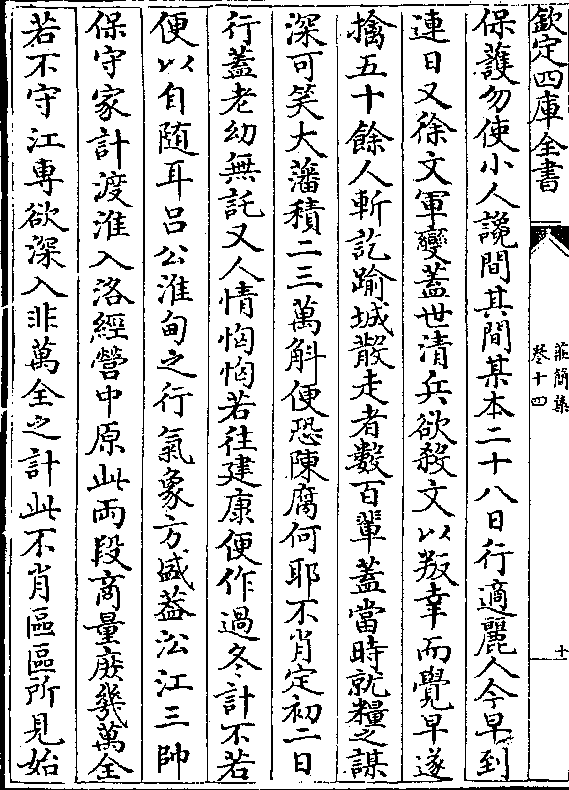 欽定四庫全書
莊簡集
卷十四
十
保護勿使小人讒間其間某本二十八日行適麗人今早到
連日又徐文軍變蓋世清兵欲殺文以叛幸而覺早遂
擒五十餘人斬訖踰城散走者數百輩蓋當時就糧之謀
深可笑大藩積二三萬斛便恐陳腐何耶不肖定初二日
行蓋老幼無託又人情恟恟若往建康便作過冬計不若
便以自隨耳呂公淮甸之行氣象方盛葢沿江三帥
保守家計渡淮入洛經營中原此兩段商量庶幾萬全
若不守江專欲深入非萬全之計此不肖區區所見始